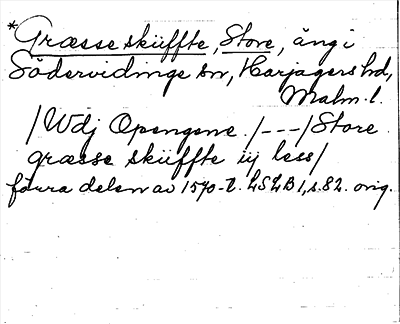 *Græsse skiiffte, Store, äng i
Södervidinge sn, Harjagers hd,
Malm. l.
/Wdj Opengene. /---/ Store
græsse skiiffte iij less/
förra delen av 1570-t. LSLB 1, s. 82. orig.